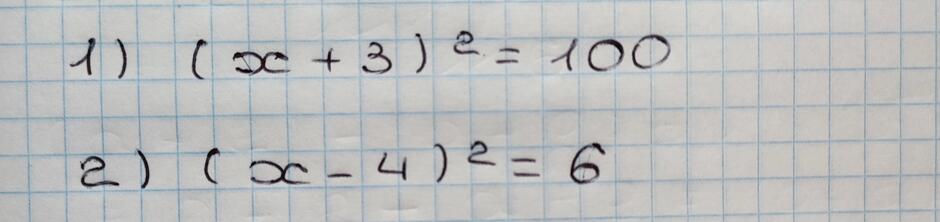 1) (x + 3)² = 100
2) (x - 4)² = 6